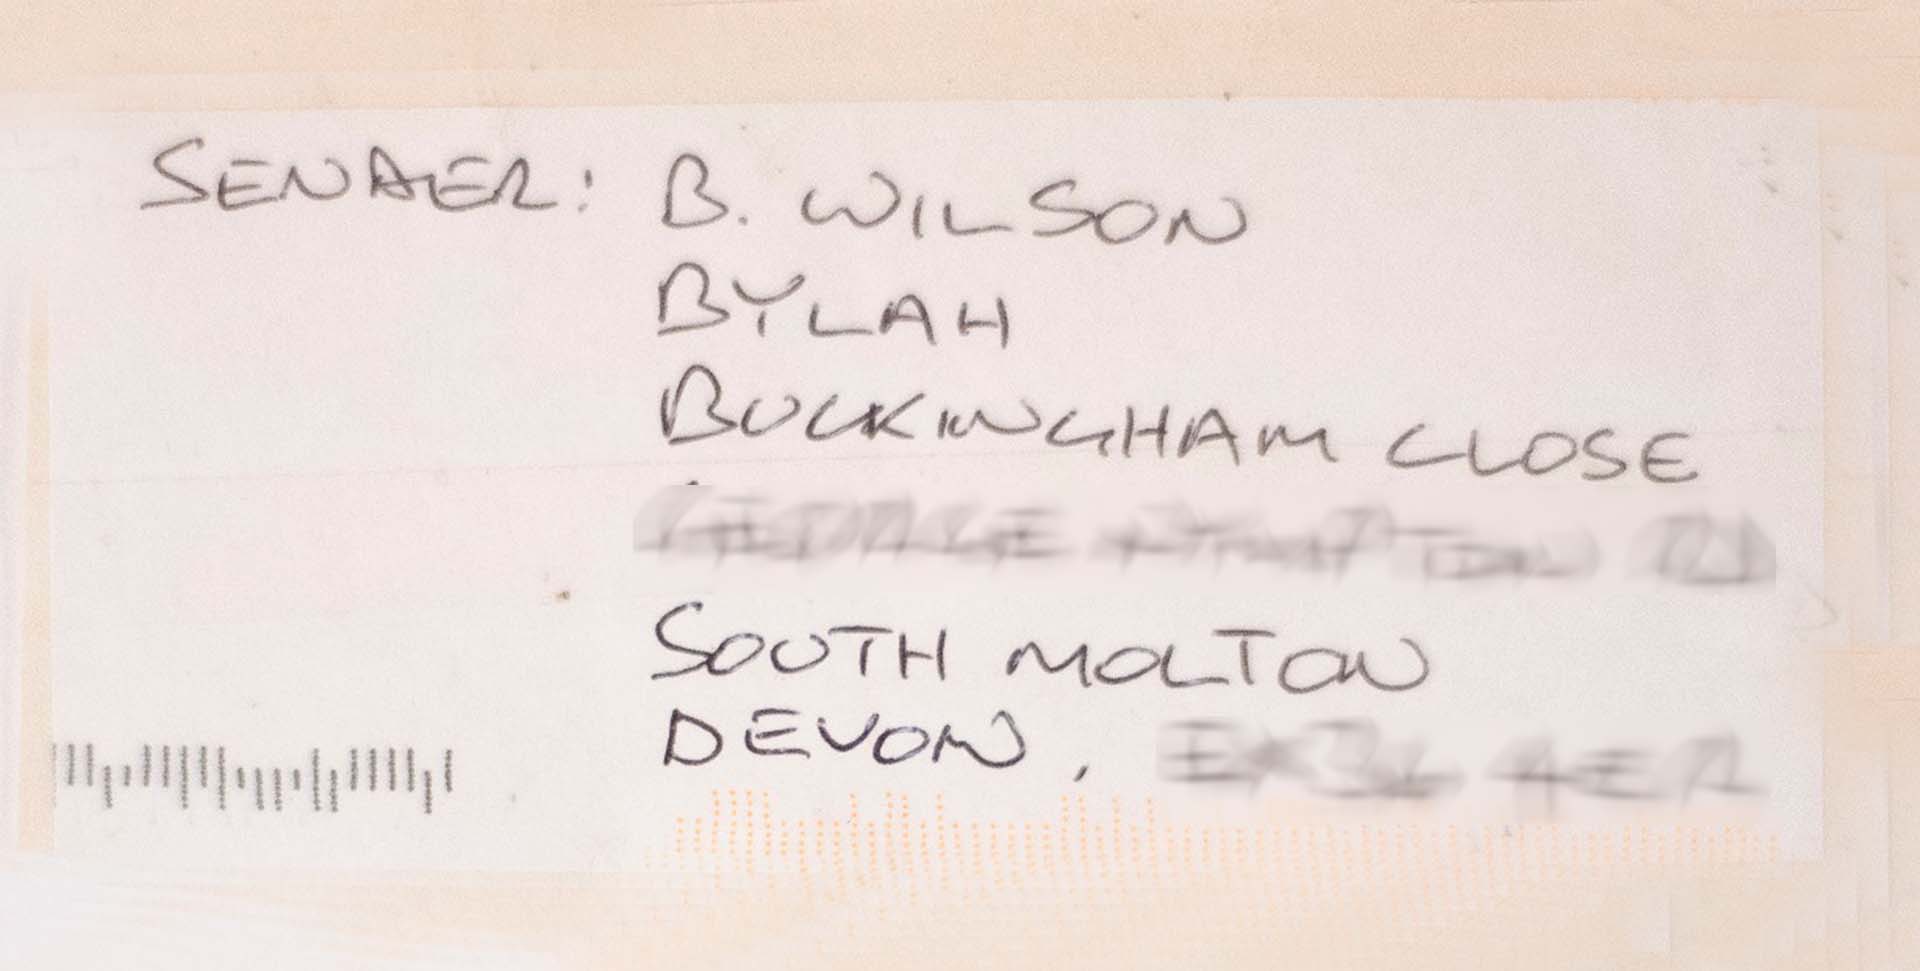 SENDER: B. WILSON
BYLAH
BUCKINGHAM CLOSE
SOUTH MOLTON
DEVON,